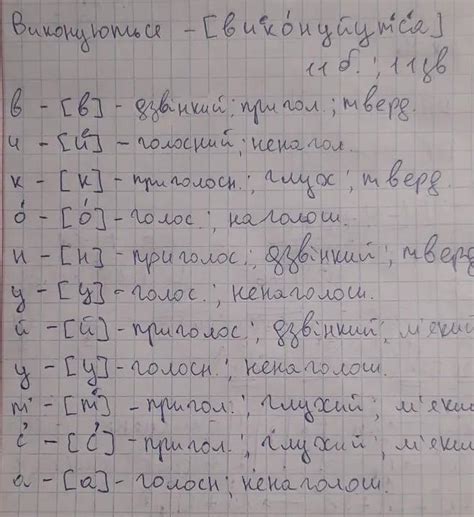 Виконуються - [виᵉко́нуйут'с'а]
11 б.; 11 зв
в - [в] - дзвінкий; пригол.; тверд.
и - [иᵉ] - голосний; ненагол.
к - [к] - приголосн.; глух; тверд.
о́ - [о́] - голос.; наголош.
н - [н] - приголос.; дзвінкий; тверд
у - [у] - голос.; ненаголош.
й - [й] - приголос.; дзвінкий; м'який
у - [у] - голосн.; ненаголош.
т' - [т'] - пригол.; глухий; м'який
с' - [с'] - пригол.; глухий; м'яки
а - [а] - голосн; ненаголош.